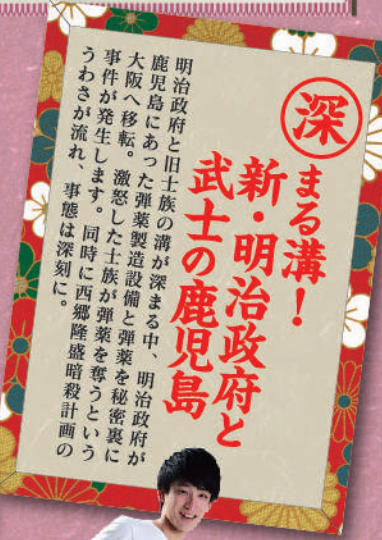 深まる溝！
新・明治政府と
武士の鹿児島
明治政府と旧士族の溝が深まる中、明治政府が
鹿児島にあった弾薬製造設備と弾薬を秘密裏に
大阪へ移転。激怒した士族が弾薬を奪うという
事件が発生します。同時に西郷隆盛暗殺計画の
うわさが流れ、事態は深刻に。